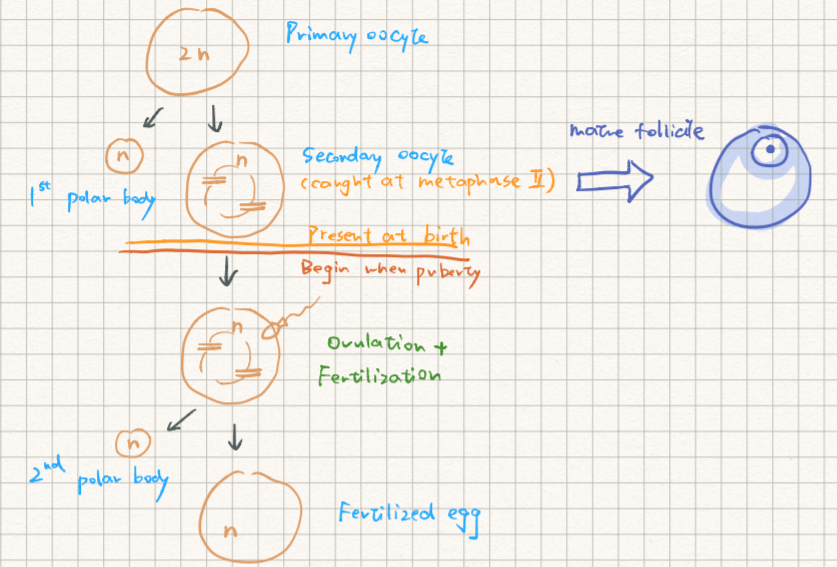 Primary oocyte
2n
n
n
1st polar body
Seconday oocyte
(caught at metaphase II)
mature follicle
Present at birth
Begin when puberty
n
Ovulation +
Fertilization
n
2nd polar body
n
Fertilized egg